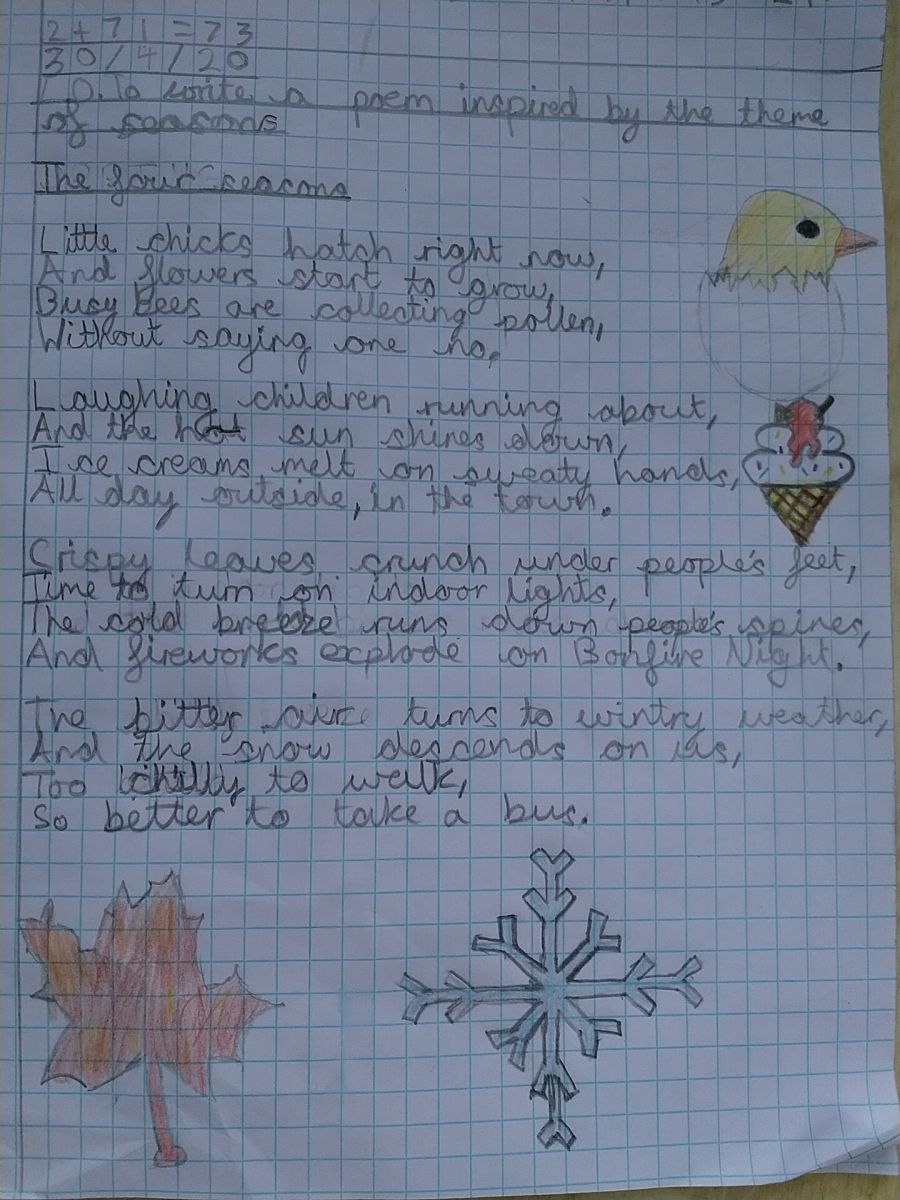 2+71=73
30/4/20
L.O.To write a poem inspired by the theme
of seasons
The four seasons
Little chicks hatch right now,
And flowers start to grow,
Busy Bees are collecting pollen,
Without saying one no.
Laughing children running about,
And the hot sun shines down,
Ice creams melt on sweaty hands,
All day outside, in the town.
Crispy leaves crunch under people's feet,
Time to turn on indoor lights,
The cold breeze runs down people's spines,
And fireworks explode on Bonfire Night.
The bitter turns to wintry weather,
And the snow descends on us,
Too chilly to walk,
So better to take a bus.